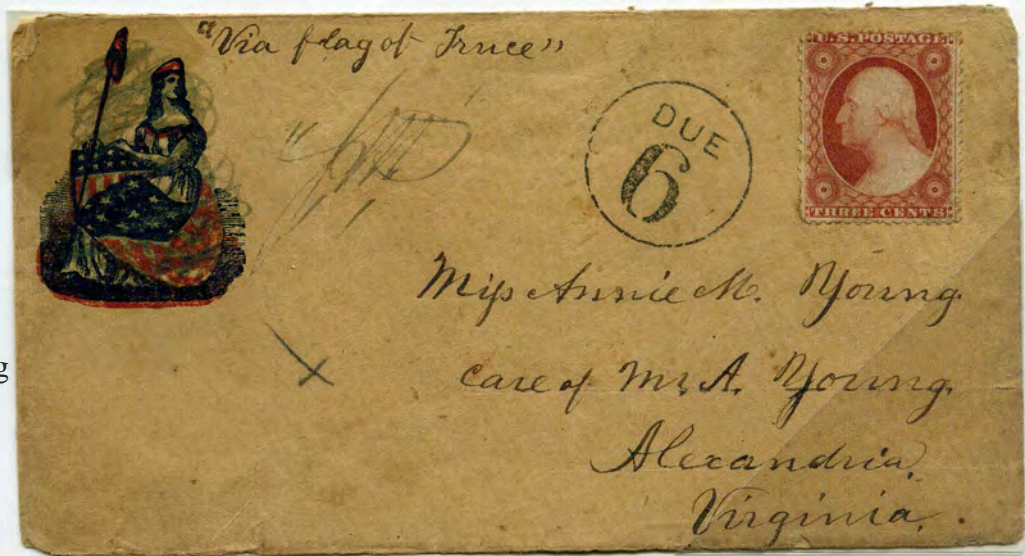 "Via flag of Truce"
U.S. POSTAGE
DUE
6
THREE CENTS
Miss Annie M. Young
care of Mr. A. Young
Alexandria,
Virginia.
g